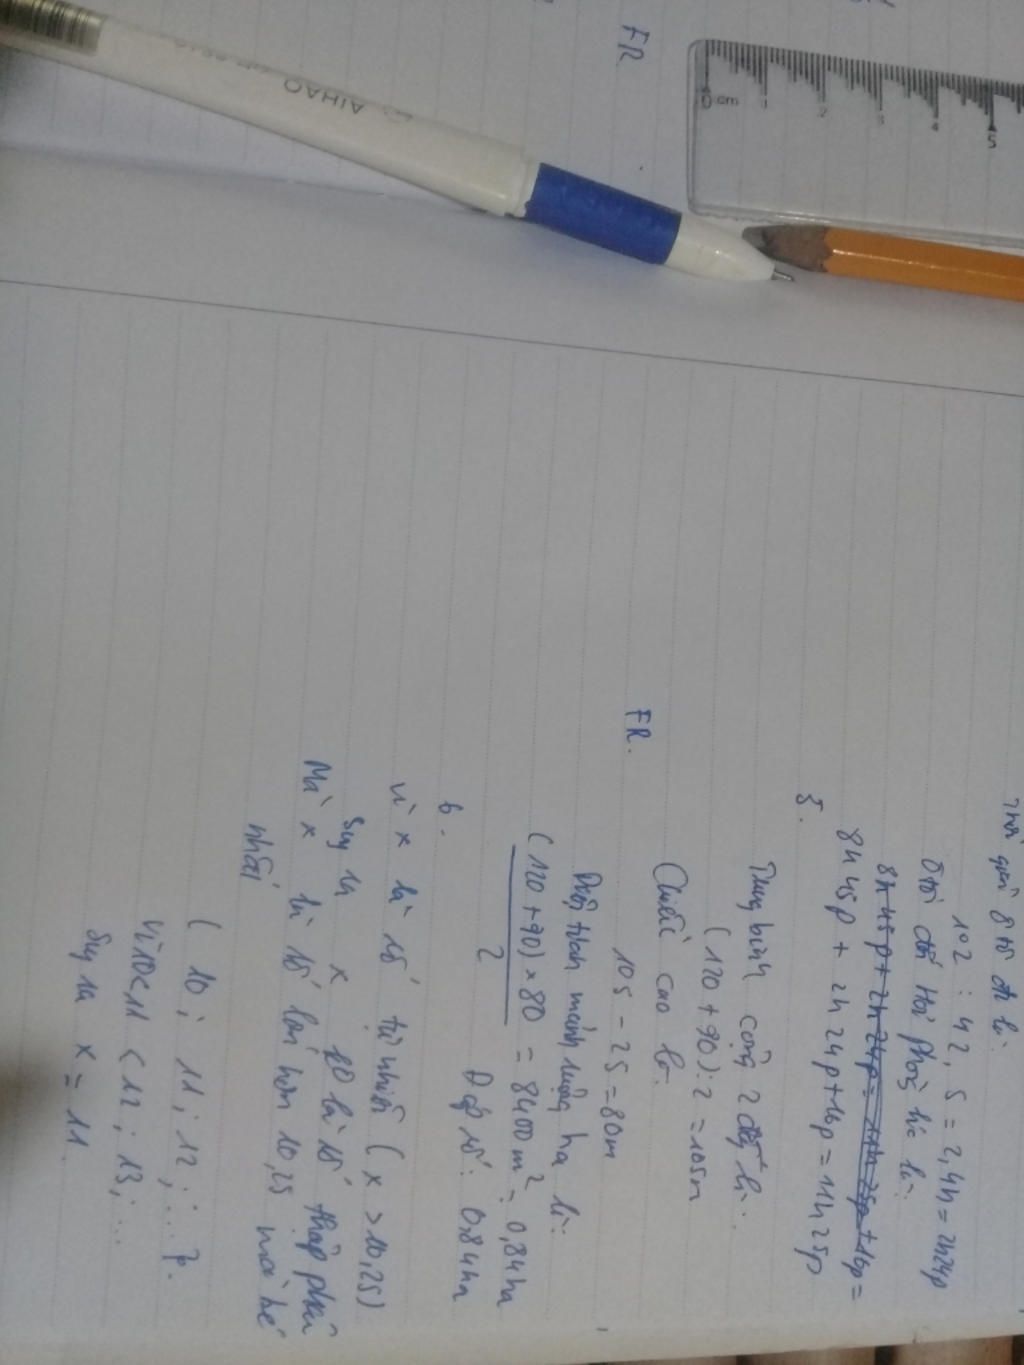 Thời gian ô tô đi là:
102 : 42,5 = 2,4h = 2h24p
Ô tô đến Hải Phòng lúc là:
8h45p + 2h24p = 11h25p + 16p =
8h45p + 2h24p + 16p = 11h25p
5.
Trung bình cộng 2 đáy là:
(120 + 90) : 2 = 105m
Chiều cao là:
105 - 25 = 80m
FR.
Diện tích mảnh ruộng ha là:
(120 + 90) × 80 = 8400m² = 0,84ha
2
Đáp số: 0,84ha
6.
Vì x là số tự nhiên (x > 10,25)
Suy ra x là số thập phân
Mà x là số lớn hơn 10,25 mà bé
nhất
(10; 11; 12; ...).
Vì 10 < 11 < 12; 13; ...
Suy ra x = 11.
FR
AIHAO
0 cm 1 2 3 4 5